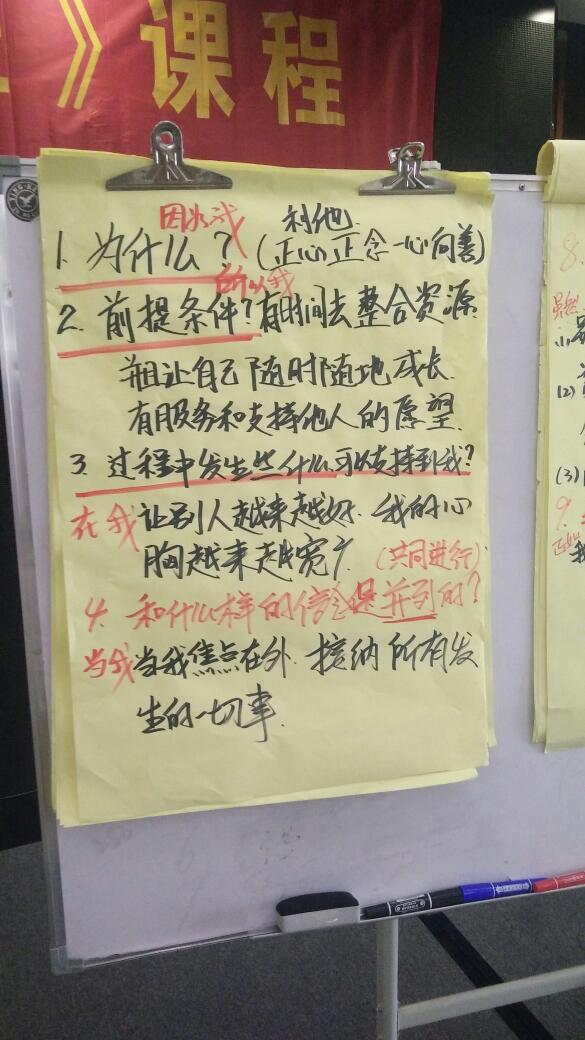 》课程
因为我 利他
1. 为什么？(正心正念一心向善)
所以我
2. 前提条件？有时间去整合资源
并且让自己随时随地成长.
有服务和支持他人的愿望.
3. 过程中发生些什么可以支持到我？
在我 让别人越来越好. 我的心
胸越来越宽广 (共同进行)
4. 和什么样的信念是并列的？
当我 当我焦点在外. 接纳所有发
生的一切事.
8.
虽然
(2)
(3)
9.